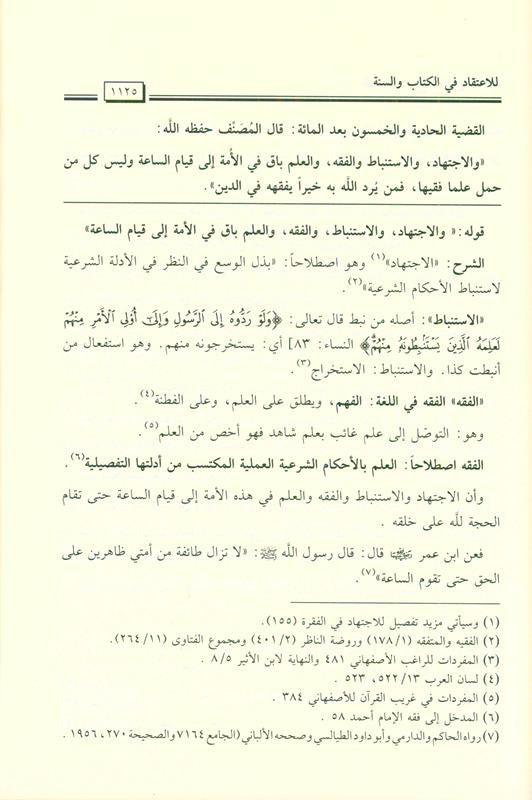 للاعتقاد في الكتاب والسنة
١١٢٥
القضية الحادية والخمسون بعد المائة: قال المُصَنِّف حفظه اللَّه:
«والاجتهاد، والاستنباط والفقه، والعلم باق في الأُمة إلى قيام الساعة وليس كل من
حمل علما فقيها، فمن يُرد اللَّه به خيراً يفقهه في الدين».
قوله: « والاجتهاد، والاستنباط، والفقه، والعلم باق في الأمة إلى قيام الساعة»
الشرح: «الاجتهاد»(١) وهو اصطلاحاً: «بذل الوسع في النظر في الأدلة الشرعية
لاستنباط الأحكام الشرعية»(٢).
«الاستنباط»: أصله من نبط قال تعالى: ﴿وَلَوْ رَدُّوهُ إِلَى ٱلرَّسُولِ وَإِلَىٰٓ أُوْلِى ٱلْأَمْرِ مِنْهُمْ
لَعَلِمَهُ ٱلَّذِينَ يَسْتَنۢبِطُونَهُۥ مِنْهُمْۗ﴾ النساء: ٨٣] أي: يستخرجونه منهم. وهو استفعال من
أنبطت كذا. والاستنباط: الاستخراج(٣).
«الفقه» الفقه في اللغة: الفهم، ويطلق على العلم، وعلى الفطنة(٤).
وهو: التوصّل إلى علم غائب بعلم شاهد فهو أخص من العلم(٥).
الفقه اصطلاحاً: العلم بالأحكام الشرعية العملية المكتسب من أدلتها التفصيلية(٦).
وأن الاجتهاد والاستنباط والفقه والعلم في هذه الأمة إلى قيام الساعة حتى تقام
الحجة للَّه على خلقه .
فعن ابن عمر قال: قال رسول اللَّه ﷺ: «لا تزال طائفة من أمتي ظاهرين على
الحق حتى تقوم الساعة»(٧).
(١) وسيأتي مزيد تفصيل للاجتهاد في الفقرة (١٥٥).
(٢) الفقيه والمتفقه (١٧٨/١) وروضة الناظر (٤٠١/٢) ومجموع الفتاوى (٢٦٤/١١).
(٣) المفردات للراغب الأصفهاني ٤٨١ والنهاية لابن الأثير ٨/٥ .
(٤) لسان العرب ٥٢٢/١٣، ٥٢٣ .
(٥) المفردات في غريب القرآن للأصفهاني ٣٨٤ .
(٦) المدخل إلى فقه الإمام أحمد ٥٨ .
(٧) رواه الحاكم والدارمي وأبو داود الطيالسي وصححه الألباني (الجامع ٧١٦٤ والصحيحة ٢٧٠، ١٩٥٦ .